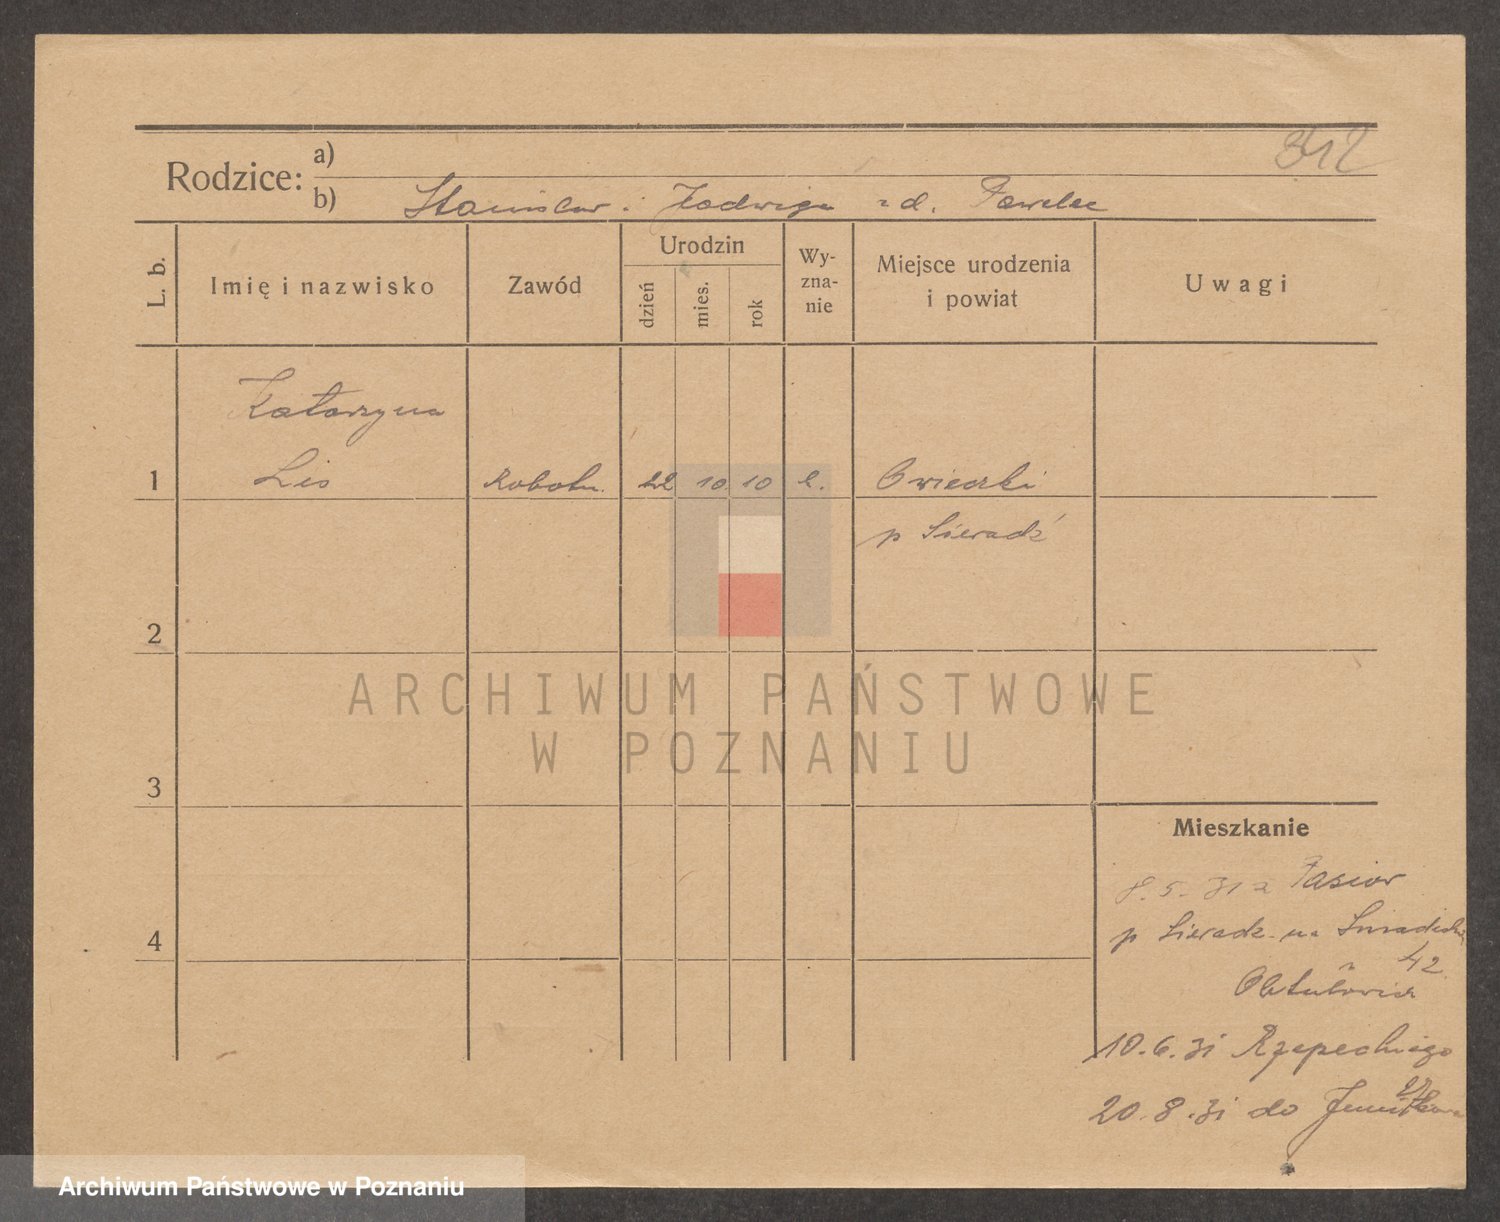 342
Rodzice: a)
b) Stanisław i Jadwiga z d. Pawelec
L. b.
Imię i nazwisko
Zawód
Urodzin
dzień
mies.
rok
Wy-
zna-
nie
Miejsce urodzenia
i powiat
Uwagi
Katarzyna
1 Lis Robotn. 22 10 10 k. Owieczki
p Sieradź
2
ARCHIWUM PAŃSTWOWE
W POZNANIU
3
Mieszkanie
8.5.31 z
p Sieradz na
4
42
10.6.31 Rzepeckiego
20.8.31 do
Archiwum Państwowe w Poznaniu